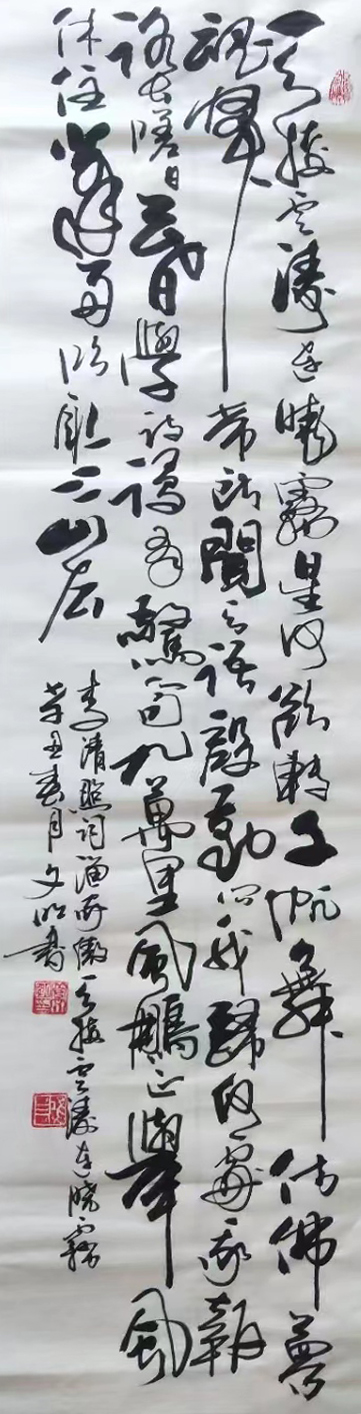 天接雲濤連曉霧星河欲轉千帆舞仿佛夢
魂歸帝所聞天語殷勤問我歸何處我報
路長嗟日暮學詩謾有驚人句九萬里風鵬正舉風
休住蓬舟吹取三山去
李清照詞漁家傲天接雲濤連曉霧
辛丑春月文明書